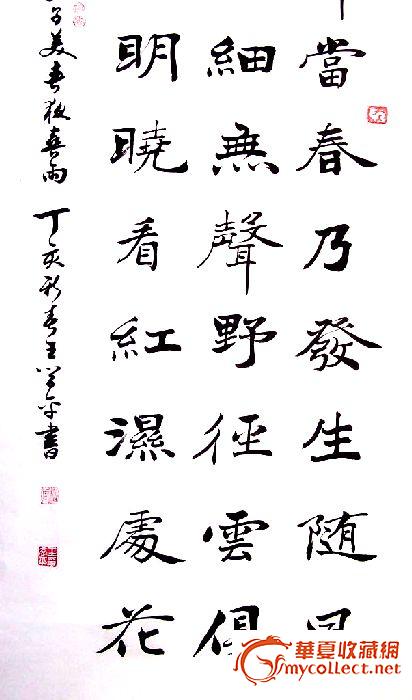 當春乃發生随
細無聲野徑雲俱
明曉看紅濕處花
子美春夜喜雨 丁亥新春王 平書
華夏收藏網
mycollect.net